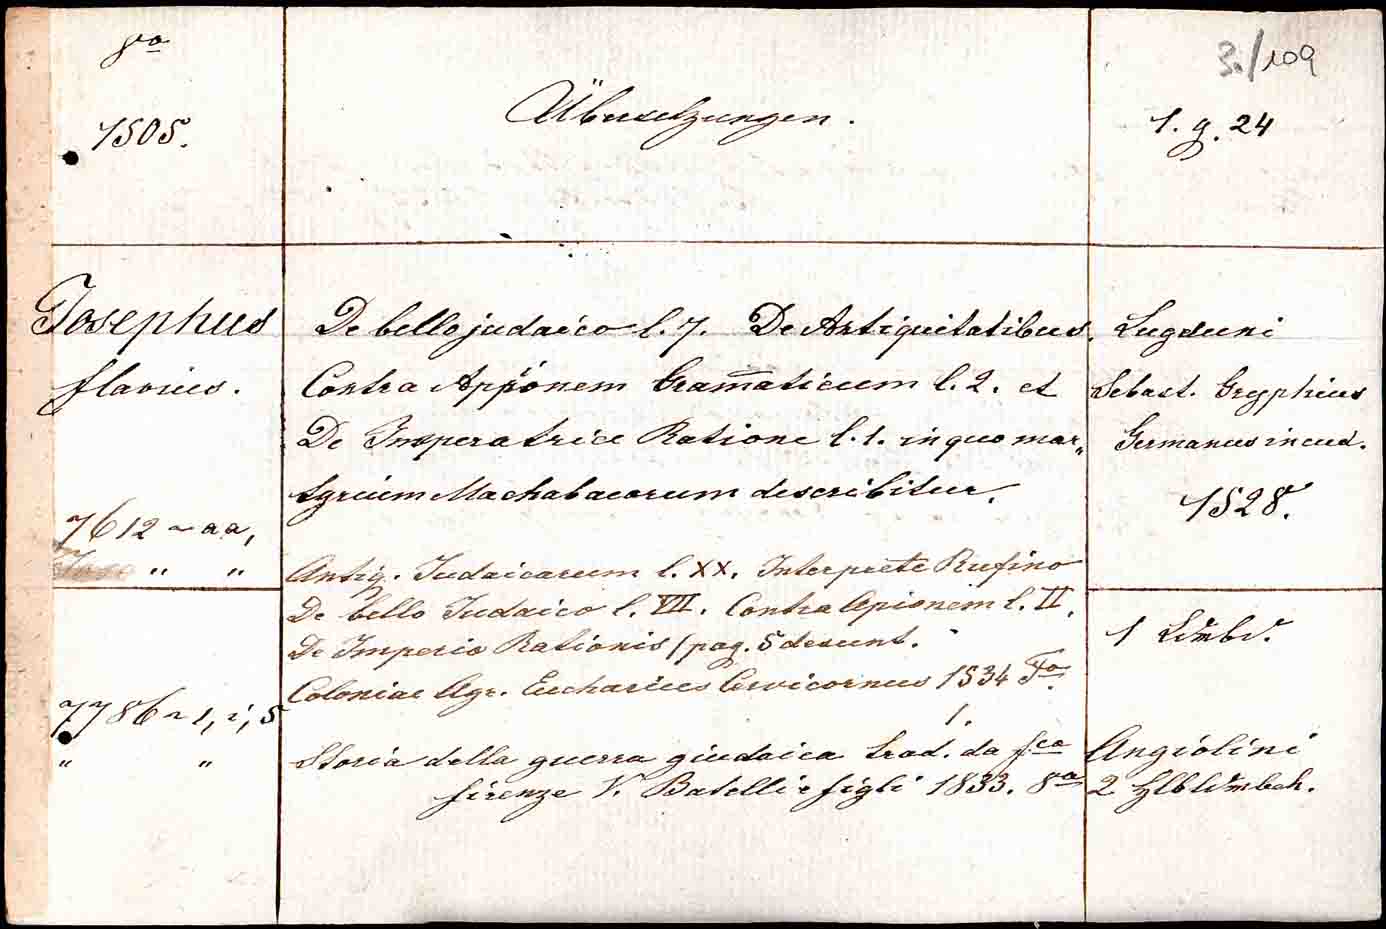 8vo
1505.
Übersetzungen.
3./109
1. g. 24
Josephus
flavius.
De bello judaico l. 7. De Antiquitatibus.
Contra Appionem Gramaticum l. 2. et
De Imperatrice Ratione l. 1. in quo mar„
tyrium Machabaeorum describitur.
Lugduni
Sebast. Gryphius
Germanus incud.
1528.
7612 ~ aa,
„ „
Antiq. Judaicarum l. XX. Interprete Rufino
De bello Judaico l. VII. Contra Apionem l. II.
De Imperio Rationis / pag. 5 desunt.
Coloniae Agr. Eucharius Cervicornus 1534 Fo.
1.
7786 ~ 1, i, 5
„ „
Storia della guerra giudaica trad. da fco
firenze V. Batelli e figli 1833. 8o
Angiolini